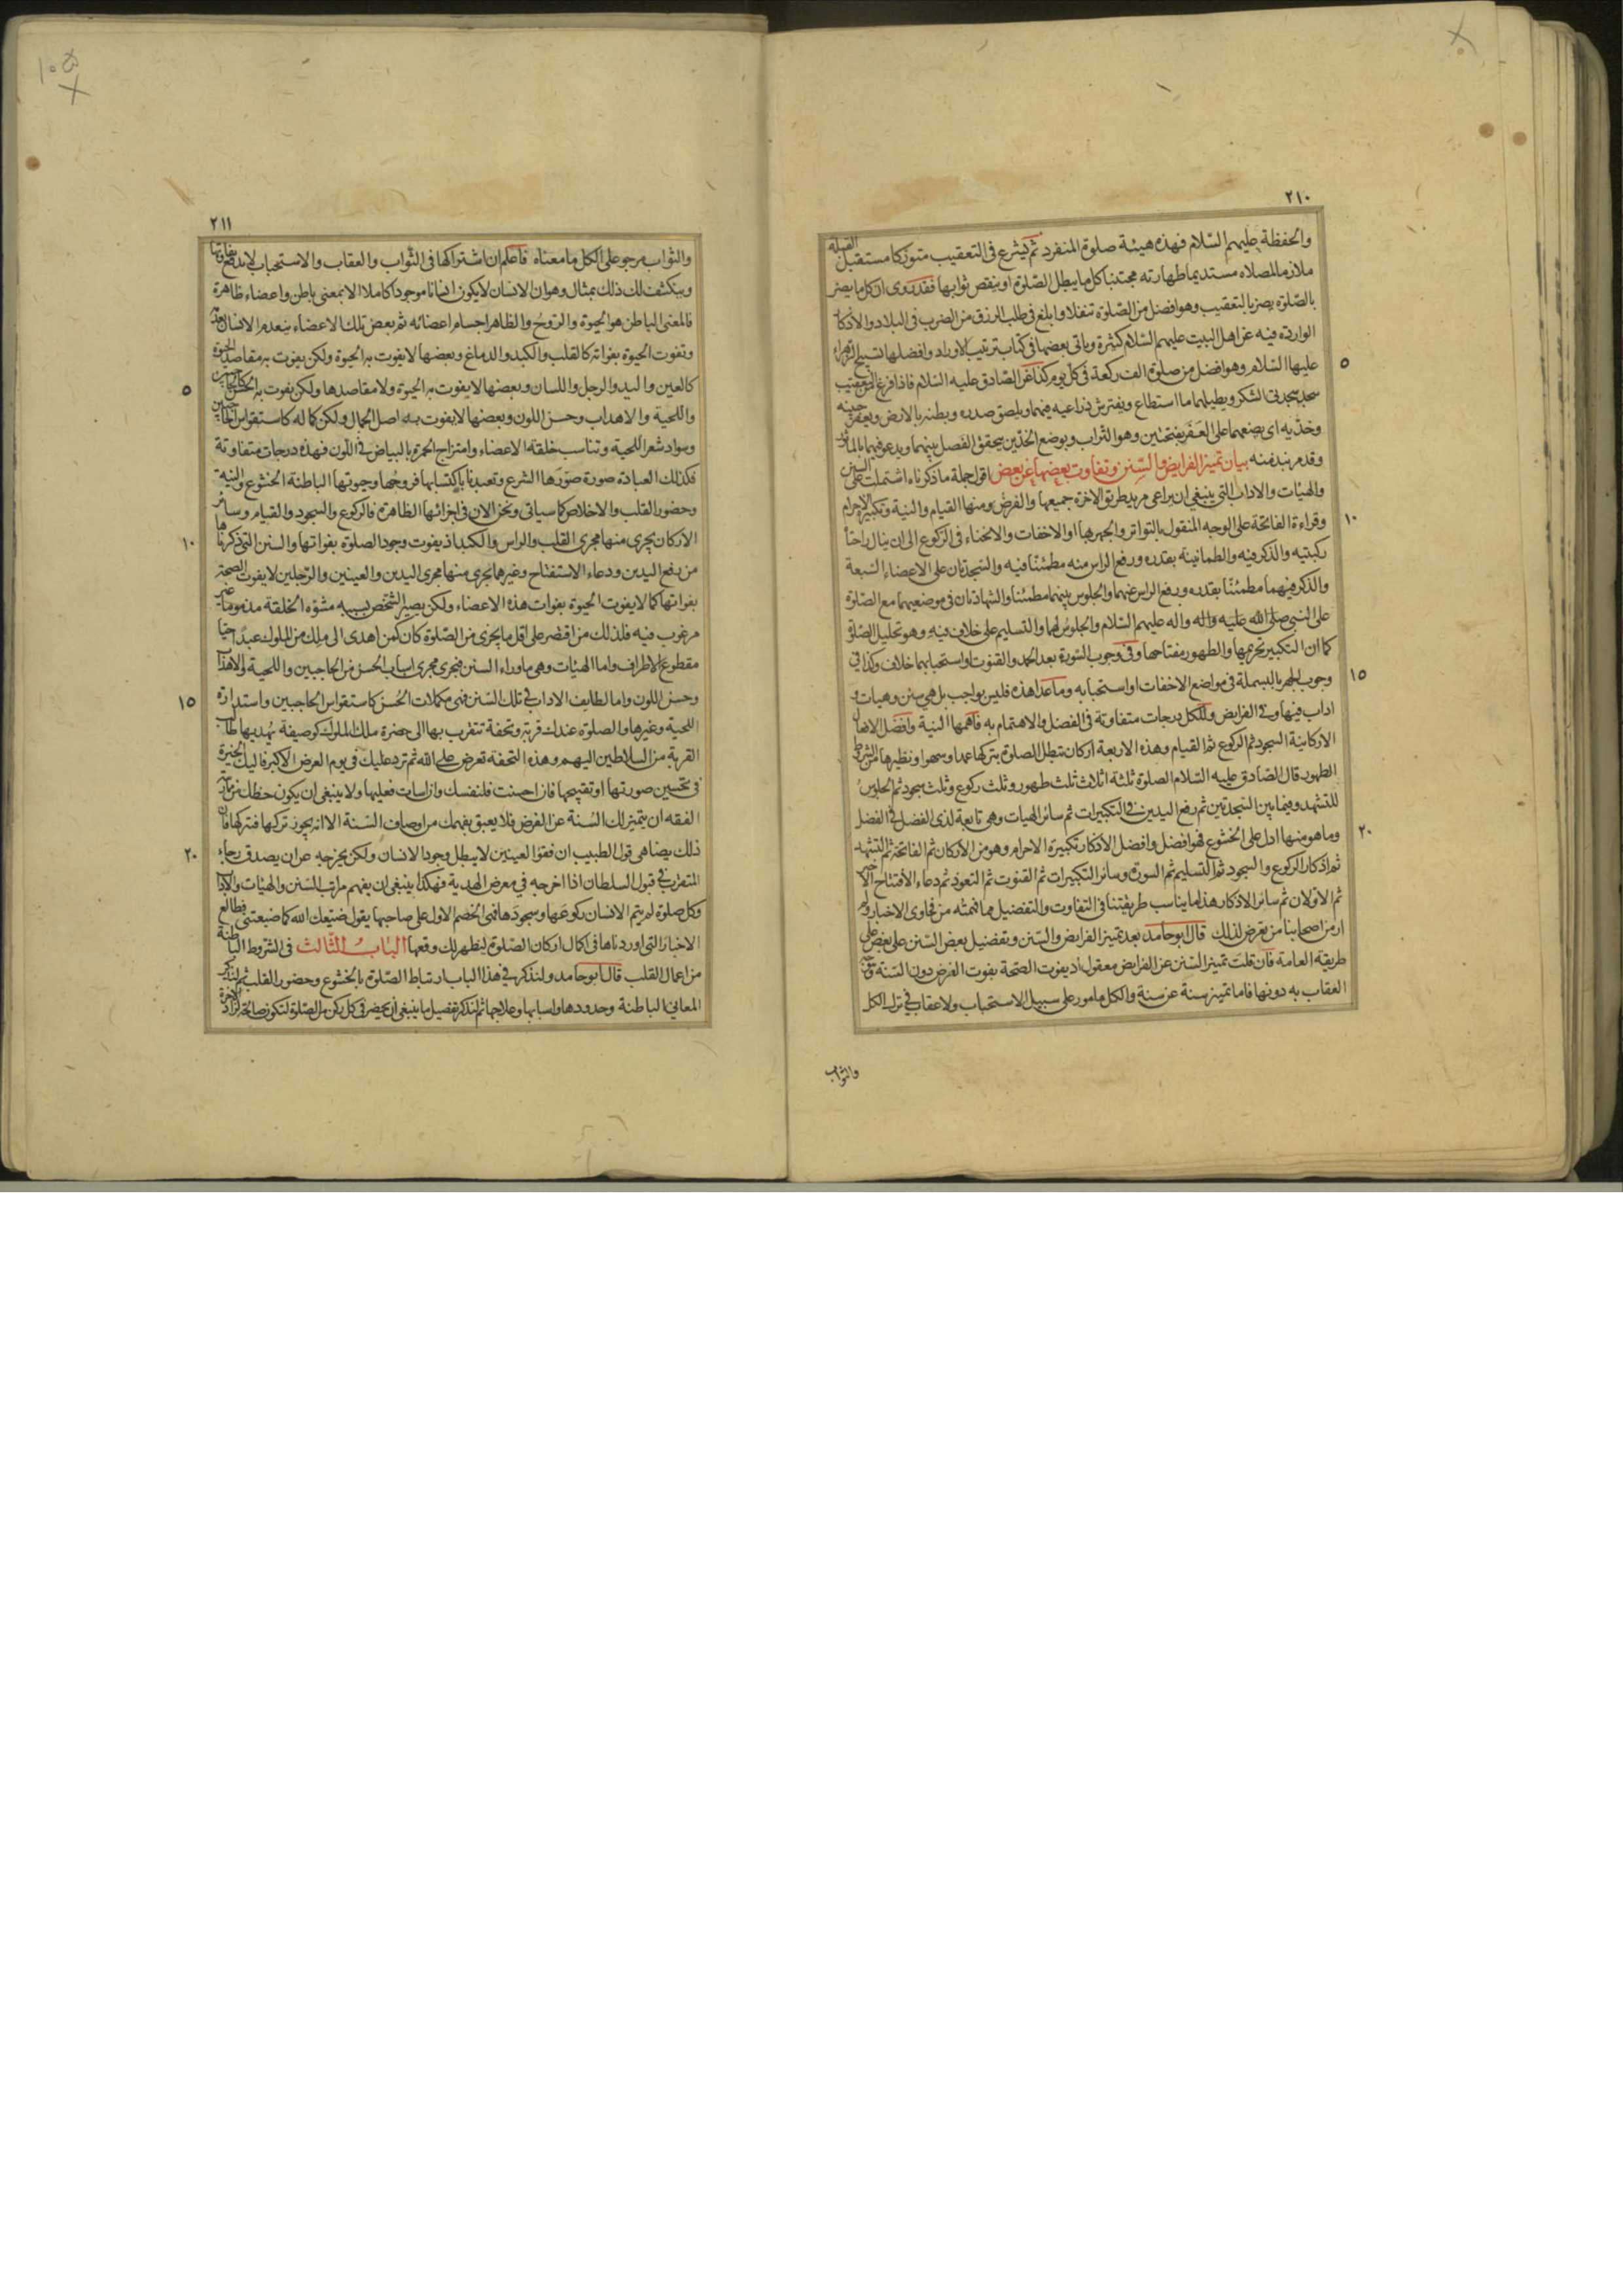 ٢١٠
والحفظة عليهم السلام فهذه هيئة صلوة المنفرد ثم يشرع فى التعقيب متوركا مستقبل القبلة
ملازما لمصلاه مستديما طهارته مجتنبا كل ما يبطل الصلوة او ينقص ثوابها فقد روى ان كل ما يضر
بالصلوة يضر بالتعقيب وهو افضل من الصلوة تنفلا وابلغ فى طلب الرزق من الضرب فى البلاد والاذكار
الواردة فيه عن اهل البيت عليهم السلام كثيرة وياتى بعضها فى كتاب ترتيب الاوراد وافضلها تسبيح الزهراء
٥
عليها السلام وهو افضل من صلوة الف ركعة فى كل يوم كذا عن الصادق عليه السلام فاذا فرغ من التعقيب
سجد سجدتى الشكر ويطيلهما ما استطاع ويفترش ذراعيه فيهما ويلصق صدره وبطنه بالارض ويعفر جبينه
وخديه اى يضعهما على العفر بفتحتين وهو التراب وبوضع الخدين يتحقق الفصل بينهما ويدعو فيهما بالماثور
وقد مر نبذ منه بيان تميز الفرايض والسنن وتفاوت بعضها عن بعض اقول جملة ما ذكرناه اشتملت على السنن
والهيئات والاداب التى ينبغى ان يراعى مريد طريق الاخرة جميعها والفرض ومنها القيام والنية وتكبيرة الاحرام
١٠
وقراءة الفاتحة على الوجه المنقول بالتواتر والجهر بها او الاخفات والانحناء فى الركوع الى ان ينال راحتاه
ركبتيه والذكر فيه والطمانينة بقدره ورفع الراس منه مطمئنا فيه والسجدتان على الاعضاء السبعة
والذكر فيهما مطمئنا بقدره ورفع الراس عنهما والجلوس بينهما مطمئنا والشهادتان فى موضعيهما مع الصلوة
على النبى صلى الله عليه واله واله عليهم السلام والجلوس لهما والتسليم على خلاف فيه وهو تحليل الصلوة
كما ان التكبير تحريمها والطهور مفتاحها وفى وجوب السورة بعد الحمد والقنوت واستحبابهما خلاف وكذا فى
١٥
وجوب الجهر بالبسملة فى مواضع الاخفات او استحبابه وما عدا هذه فليس بواجب بل هى سنن وهيات و
اداب فيها وفى الفرايض وللكل درجات متفاوتة فى الفضل والاهتمام به فاهمها النية وافضل الافعال
الاركانية السجود ثم الركوع ثم القيام وهذه الاربعة اركان تبطل الصلوة بتركها عمدا وسهوا ونظيرها من الشروط
الطهور قال الصادق عليه السلام الصلوة ثلثة اثلاث ثلث طهور وثلث ركوع وثلث سجود ثم الجلوس
للتشهد وفيما بين السجدتين ثم رفع اليدين فى التكبيرات ثم سائر الهيات وهى تابعة لذى الفضل فى الفضل
٢٠
وما هو منها ادل على الخشوع فهو افضل وافضل الاذكار تكبيرة الاحرام وهو من الاركان ثم الفاتحة ثم التشهد
ثم اذكار الركوع والسجود ثم التسليم ثم السورة وسائر التكبيرات ثم القنوت ثم التعوذ ثم دعاء الافتتاح
ثم الاولان ثم سائر الاذكار هذا ما يناسب طريقتنا فى التفاوت والتفضيل مما فهمته من فحاوى الاخبار ولم
ار من اصحابنا من يعرض لذلك قال ابو حامد بعد تميز الفرايض والسنن وتفضيل بعض السنن على بعض على
طريقة العامة فان قلت تميز السنن عن الفرايض معقول اذ يفوت الصحة بفوت الفرض دون السنة
العقاب به دونها فاما تميز سنة عن سنة والكل مامور على سبيل الاستحباب ولا عقاب فى ترك الكل
والثواب
٢١١
والثواب مرجو على الكل ما معناه فاعلم ان اشتراكها فى الثواب والعقاب والاستحباب لا يدفع تفاوتها
وينكشف لك ذلك بمثال وهو ان الانسان لا يكون انسانا موجودا كاملا الا بمعنى باطن واعضاء ظاهرة
فالمعنى الباطن هو الحيوة والروح والظاهر اجسام اعضائه ثم بعض تلك الاعضاء ينعدم الانسان بعدمه
وتفوت الحيوة بفواته كالقلب والكبد والدماغ وبعضها لا يفوت به الحيوة ولكن يفوت به مقاصد الحيوة
٥
كالعين واليد والرجل واللسان وبعضها لا يفوت به الحيوة ولا مقاصدها ولكن يفوت به الحسن كالحاجبين
واللحية والاهداب وحسن اللون وبعضها لا يفوت به اصل الجمال ولكن كماله كاستقواس الحاجبين
وسواد شعر اللحية وتناسب خلقة الاعضاء وامتزاج الحمرة بالبياض فى اللون فهذه درجات متفاوتة
فكذلك العبادة صورة صورها الشرع وتعبدنا باكتسابها فروحها وحيوتها الباطنة الخشوع والنية
وحضور القلب والاخلاص كما سياتى ونحن الان فى اجزائها الظاهرة فالركوع والسجود والقيام وسائر
١٠
الاركان يجرى منها مجرى القلب والراس والكبد اذ يفوت وجود الصلوة بفواتها والسنن التى ذكرناها
من رفع اليدين ودعاء الاستفتاح وغيرهما يجرى منها مجرى اليدين والعينين والرجلين لا يفوت الصحة
بفواتها كما لا يفوت الحيوة بفوات هذه الاعضاء ولكن يصير الشخص بسببه مشوه الخلقة مذموما غير
مرغوب فيه فلذلك من اقتصر على اقل ما يجزى من الصلوة كان كمن اهدى الى ملك من الملوك عبدا حيا
مقطوع الاطراف واما الهيئات وهى ما وراء السنن فيجرى مجرى اسباب الحسن من الحاجبين واللحية والاهداب
١٥
وحسن اللون واما لطايف الاداب فى تلك السنن فهى مكملات الحسن كاستقواس الحاجبين واستدارة
اللحية وغيرها والصلوة عندك قربة وتحفة تتقرب بها الى حضرة ملك الملوك كوصيفة يهديها طالب
القربة من السلاطين اليهم وهذه التحفة تعرض على الله ثم ترد عليك فى يوم العرض الاكبر فاليك الخيرة
فى تحسين صورتها او تقبيحها فان احسنت فلنفسك وان اسات فعليها ولا ينبغى ان يكون حظك من
الفقه ان يتميز لك السنة عن الفرض فلا يعبق بفهمك من اوصاف السنة الا انه يجوز تركها فتركها فان
٢٠
ذلك يضاهى قول الطبيب ان فقؤ العينين لا يبطل وجود الانسان ولكن يخرجه عن ان يصدق رجاء
المتقرب فى قبول السلطان اذا اخرجه فى معرض الهدية فهكذا ينبغى ان يفهم مراتب السنن والهيئات والاداب
وكل صلوة لم يتم الانسان ركوعها وسجودها فهى الخصم الاول على صاحبها يقول ضيعك الله كما ضيعتنى فطالع
الاخبار التى اوردناها فى اكمال اركان الصلوة ليظهر لك وقعها الباب الثالث فى الشروط الباطنة
من اعمال القلب قال ابو حامد ولنذكر فى هذا الباب ارتباط الصلوة بالخشوع وحضور القلب ثم لنذكر
المعانى الباطنة وحدودها واسبابها وعلاجها ثم لنذكر تفصيل ما ينبغى ان يحضر فى كل ركن من الصلوة لتكون صالحة لزاد الاخرة